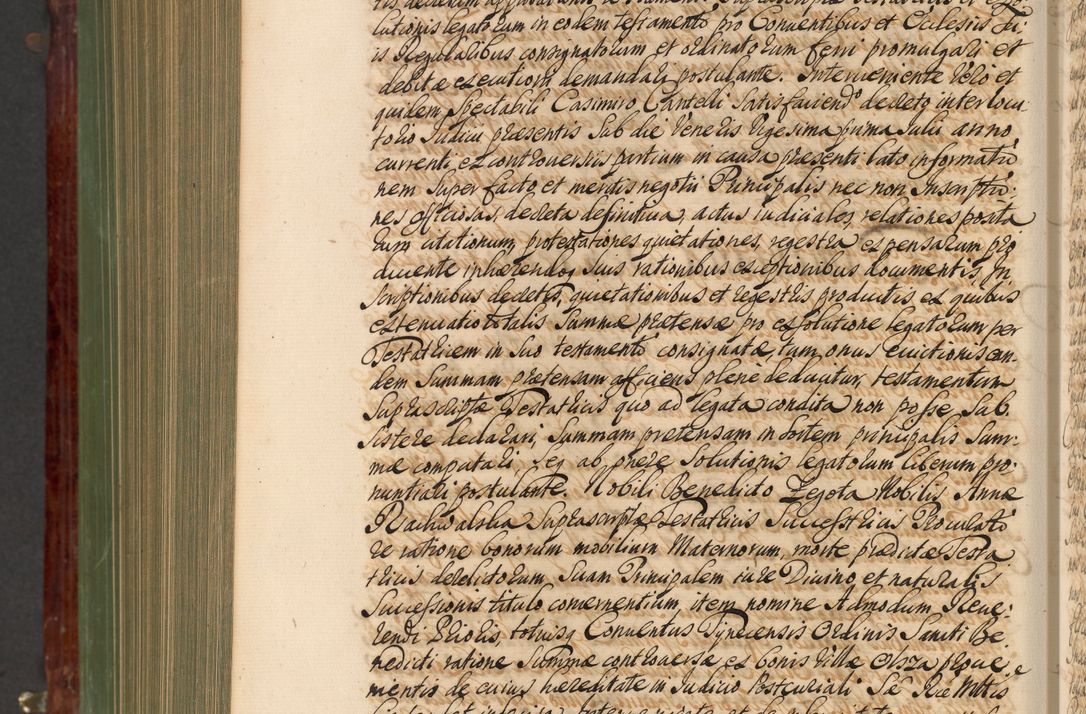 lationis legatorum in eodem testamento pro Conventibus et Ecclesiis Su
is Regularibus consignatorum et ordinatorum ferri promulgari et
debitæ executioni demandari postulante. Interveniente vero et
quidem Spectabili Casimiro Cantelli Satisfaciendo decreto interlocu
torio Judicii præsentis Sub die Veneris Vigesima prima Julii anno
currenti ex controversiis partium in causa præsenti lato informatio
nem Super facto et meritis negotii Principalis nec non Inscriptio
nes officiosas, decreta definitiva, actus iudiciales, relationes posita
rum citationum, protestationes quietationes, regestra expensarum pro
ducente inhærendoq Suis rationibus exceptionibus documentis, In
scriptionibus decretis, quietationibus et regestris productis ex quibus
extenuatio totalis Summæ prætensæ pro exsolutione legatorum per
Testatricem in Suo testamento consignatæ, tum onus evictionis ean
dem Summam prætensam afficiens plene deducitur, testamentum
Suprascriptæ Testatricis quo ad legata condita non posse Sub
sistere declarari, Summam prætensam in Sortem principalis Sum
mæ computari, Seq ab onere Solutionis legatorum liberum pro
nuntiari postulante. Nobili Benedicto Zegota Nobilis Annæ
Rachwalska Suprascriptæ Testatricis Successtricis Procurato
re ratione bonorum mobilium Maternorum, morte prædictæ Testa
tricis derelictorum, Suam Principalem iure Divino et naturalis
Successionis titulo concernentium, item nomine Admodum Reve
rendi Prioris, totiusq Conventus Tynecensis Ordinis Sancti Be
nedicti ratione Summæ controversæ ex bonis Villæ Olsza prove
mentis de cuius hæreditate in Judicio Postcuriali Sæ Ræ Mttis